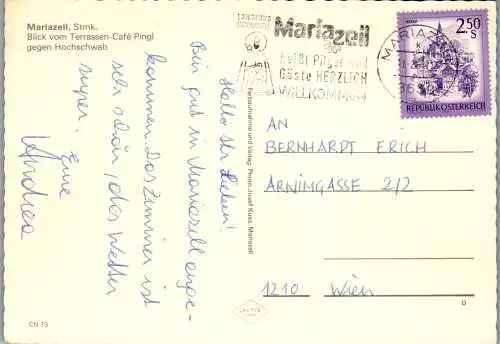 Mariazell, Stmk.
Blick vom Terrassen-Café Pingl
gegen Hochschwab
Mariazell
heißt Pilger und
Gäste HERZLICH
WILLKOMMEN
MARIAZELL
2.50
S
REPUBLIK ÖSTERREICH
Hallo ihr Lieben!
Bin gut in Mariazell ange-
kommen. Das Zimmer ist
sehr schön, das Wetter
super! Eure
Andrea
Farbaufnahme und Verlag: Photo Josef Kuss, Mariazell
AN
BERNHARDT ERICH
ARNIMGASSE 2/2
1210 Wien
CN 13